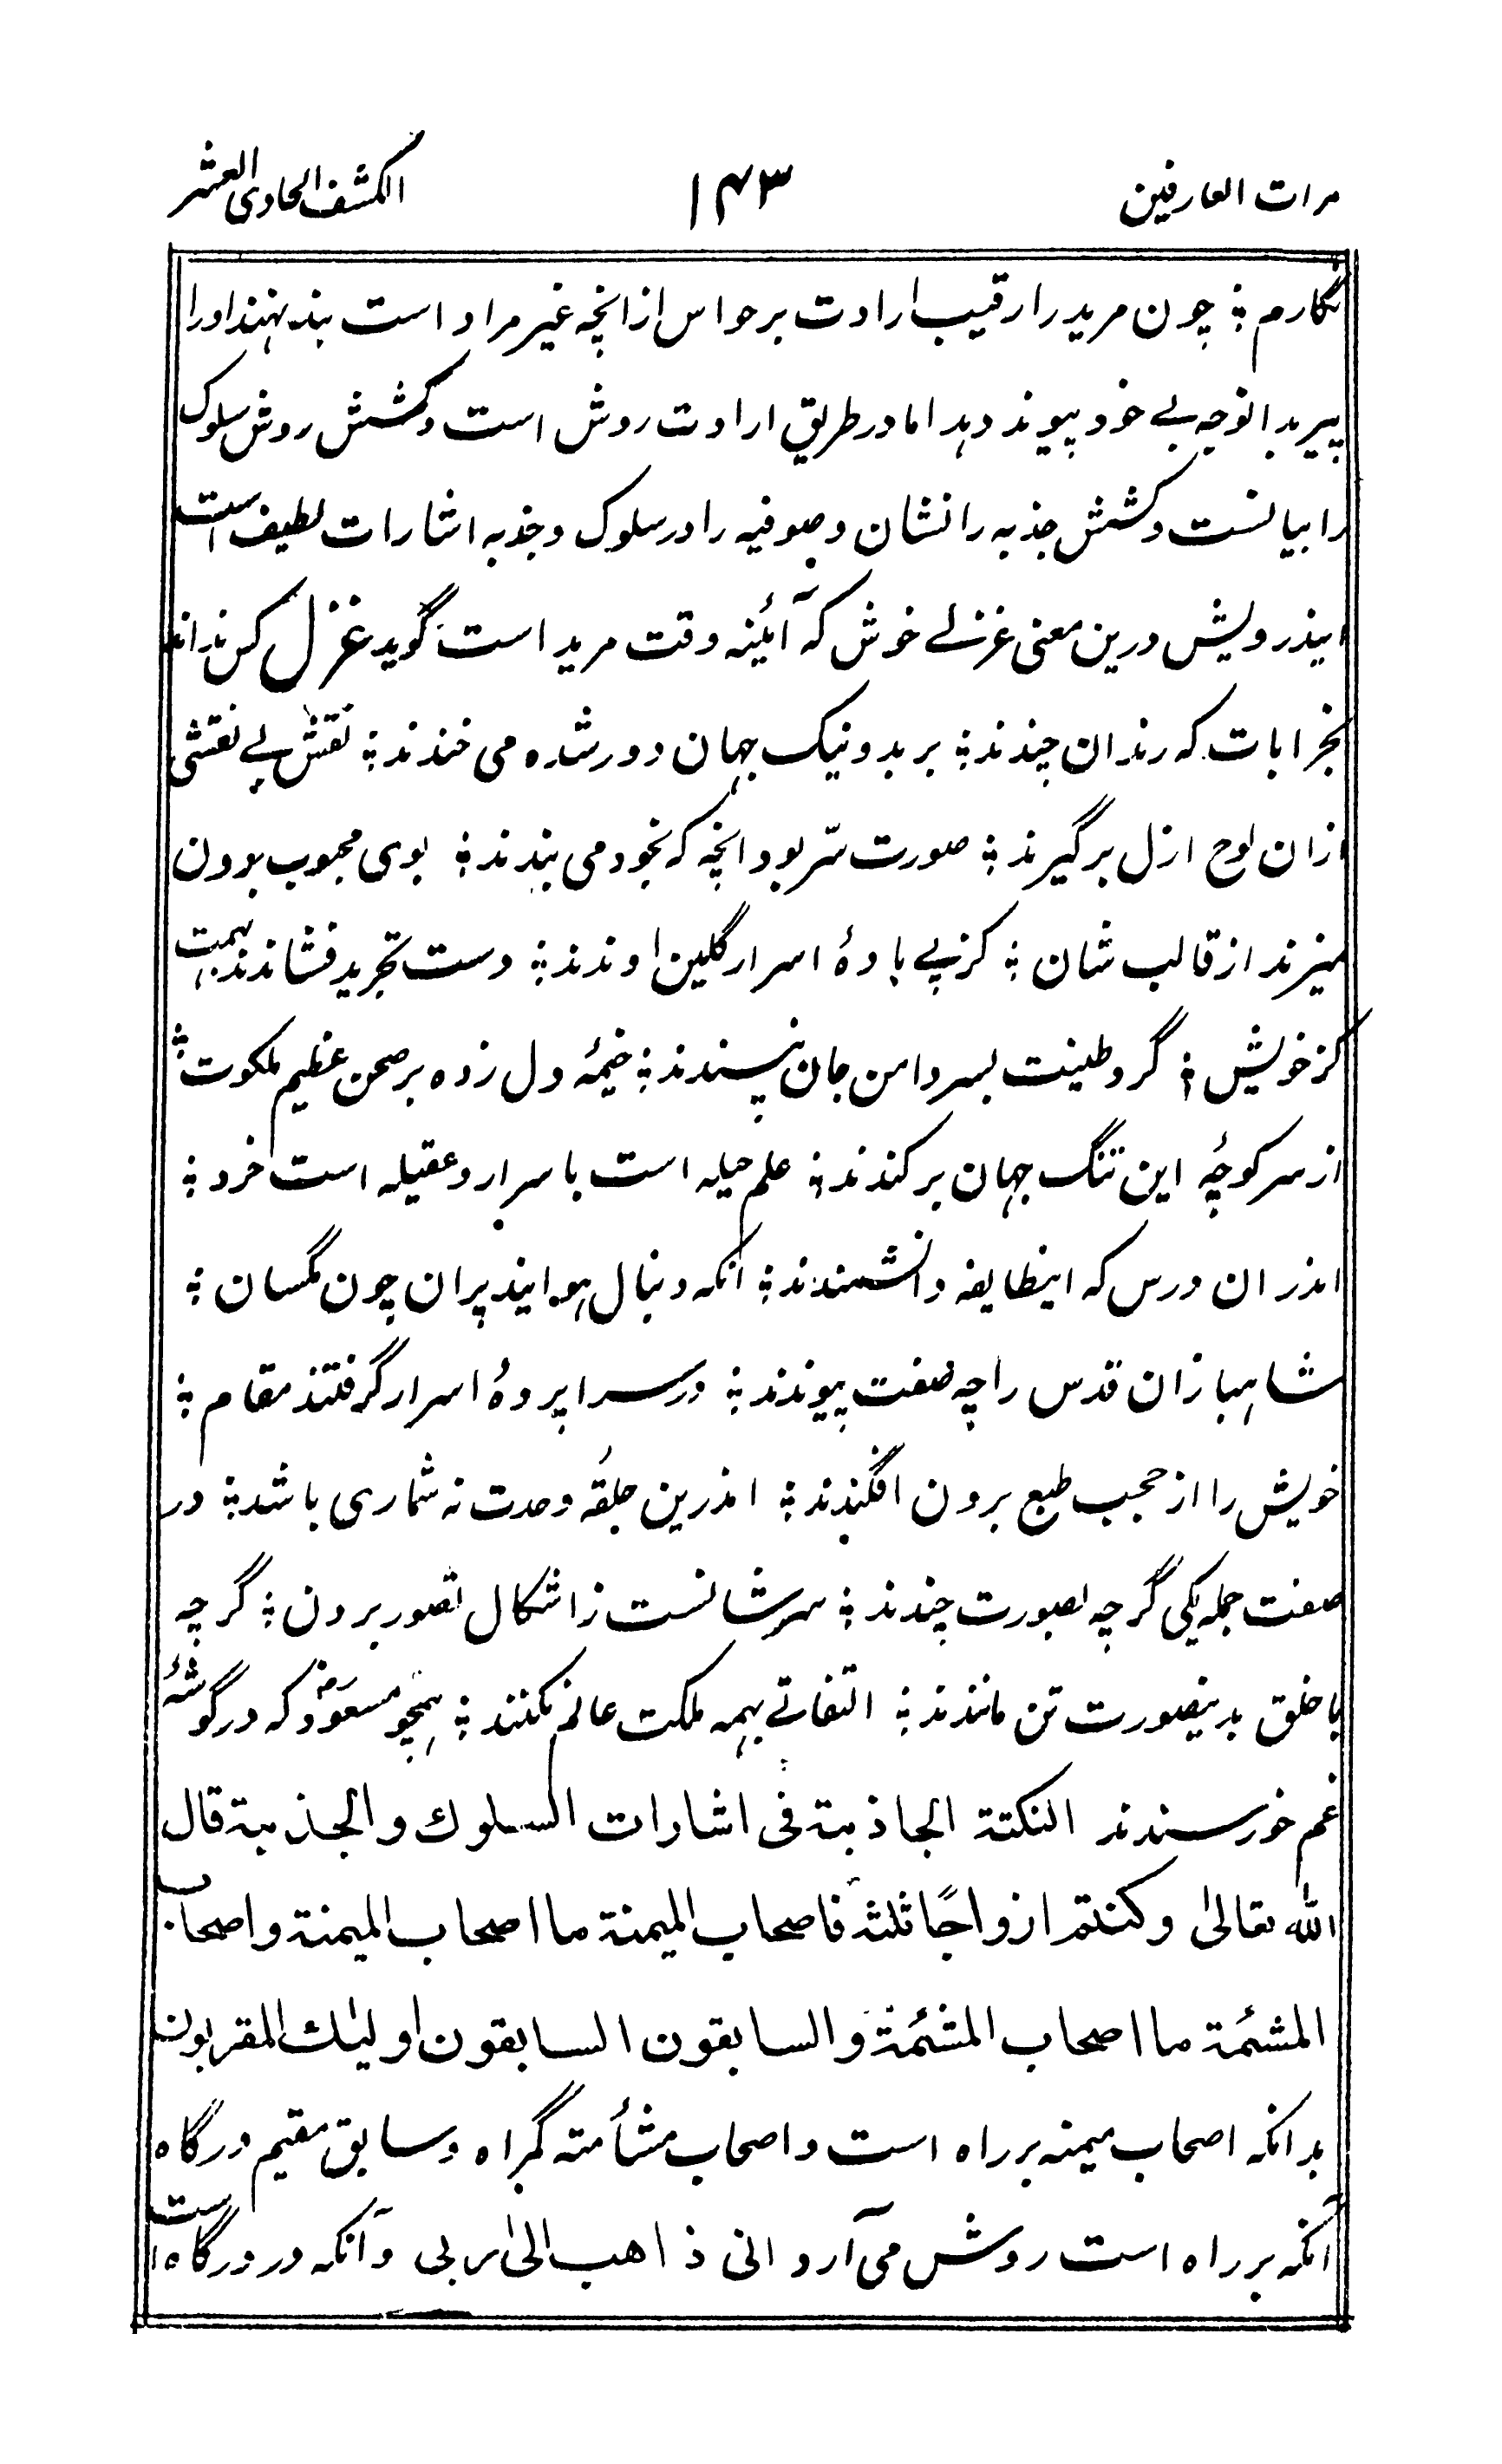 مرات العارفین ۱۴۳ الکشف الحادی العشر
نگارم ؛ چون مرید را رقیب ارادت بر حواس ازانچه غیر مراد است بند نهند او را
پیر بدانوجه بے خود پیوند دهد اما در طریق ارادت روش است و کشش روش سلوک
را بیانست و کشش جذبه را نشان و صوفیه را در سلوک و جذبه اشارات لطیف است
اینذرویش درین معنی غزلے خوش که آئینه وقت مرید است گوید غزل کس نداند
بخرابات که رندان چندند ؛ بر بد و نیک جهان دور شده می خندند ؛ نقش بے نقشی
ازان لوح ازل برگیرند ؛ صورت سّر بود انچه که بخود می بندند ؛ بوی محبوب برون
میزند از قالب شان ؛ کز پے بادهٔ اسرار گلین اوندند ؛ دست تجرید فشاندند بهمت
کز خویش ؛ گرد طینت بسر دامن جان نپسندند ؛ خیمهٔ دل زده بر صحن عظیم ملکوت ؛
از سر کوچهٔ این تنگ جهان برکندند ؛ علم حیله است باسرار و عقیله است خرد ؛
اندران درس که اینطایفه دانشمندند ؛ انکه دنبال هوایند پران چون مگسان ؛
شاهبازان قدس را چه صفت پیوندند ؛ در سراپردهٔ اسرار گرفتند مقام ؛
خویش را از حجب طبع برون افگندند ؛ اندرین حلقهٔ وحدت نه شماری باشد ؛ در
صفت جمله یکی گرچه بصورت چندند ؛ سرشانست ز اشکال تصور برون ؛ گرچه
با خلق بدینصورت تن مانندند ؛ التفاتے بهمه ملکت عالم نکنند ؛ همچو مسعودؒ که در گوشهٔ
غم خورسندند النکتة الجاذبة فی اشارات السلوك والجذبة قال
الله تعالیٰ وکنتم ازواجًا ثلثة فاصحاب المیمنة ما اصحاب المیمنة واصحاب
المشئمة ما اصحاب المشئمة والسابقون السابقون اولیٰك المقربون
بدانکه اصحاب میمنه بر راه است و اصحاب مشأمته گمراه و سابق مقیم درگاه
آنکه بر راه است روش می آرد انی ذاهب الیٰ ربی و آنکه در درگاه است